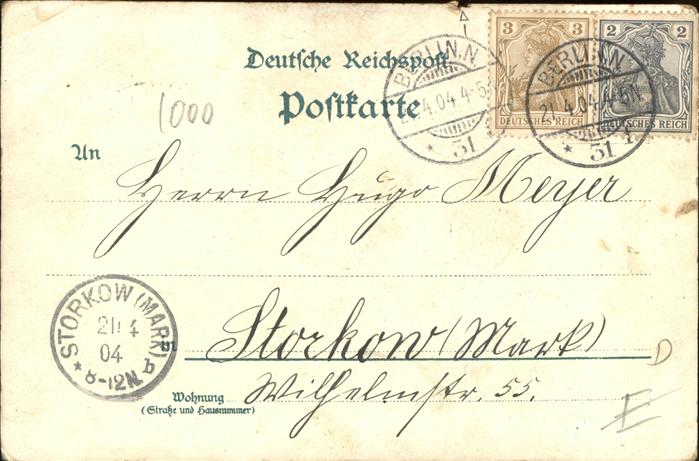 Deutsche Reichspost
Postkarte
3 3
DEUTSCHES REICH
2 2
DEUTSCHES REICH
BERLIN, N.
21.4.04.4-5N.
* 31 f
BERLIN, N.
21.4.04.4-5N.
* 31 f
1000
An
Herrn Hugo Meyer
STORKOW (MARK) b
21 4
04
* 8-12N.
in Storkow (Mark)
D
Wohnung
(Straße und Hausnummer)
Wilhelmstr. 55.
E